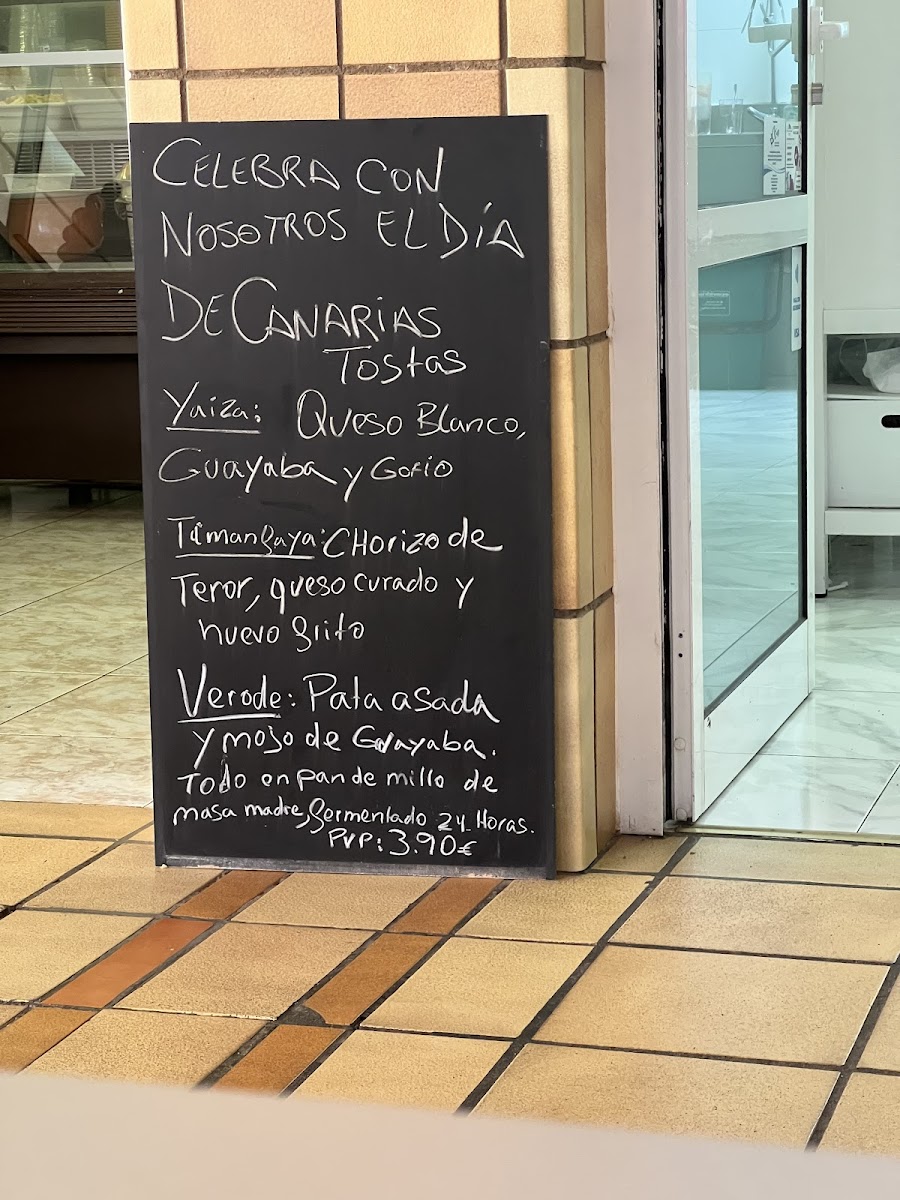 CELEBRA CON
NOSOTROS EL DÍA
DE CANARIAS
TOSTAS
Yaiza: Queso Blanco,
Guayaba y Gofio
Timanfaya: CHorizo de
Teror, queso curado y
huevo frito
Verode: Pata asada
y mojo de Guayaba.
Todo en pan de millo de
masa madre, fermentado 24 Horas.
PVP: 3.90€